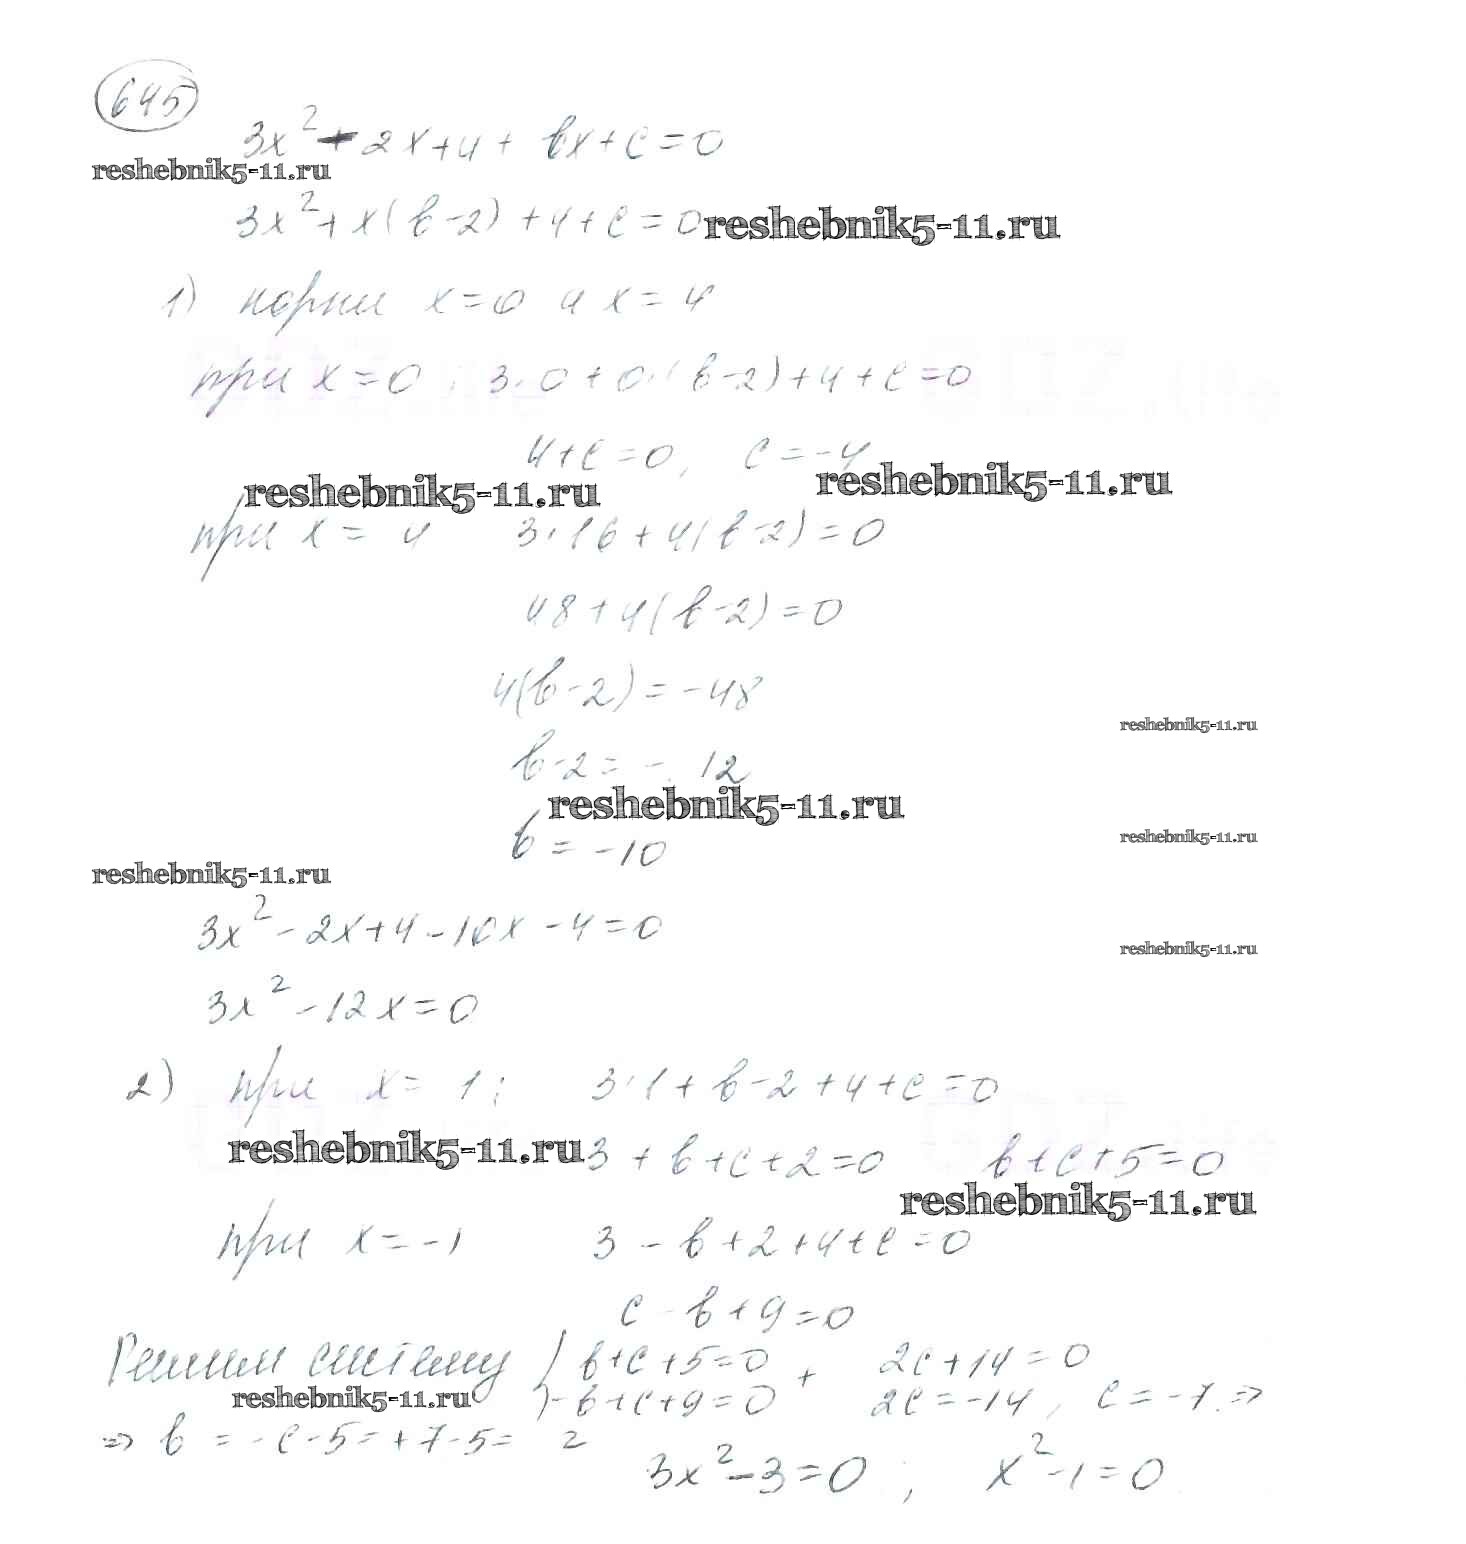 645
3x² - 2x + 4 + bx + c = 0
reshebnik5-11.ru
3x² + x(b-2) + 4 + c = 0 reshebnik5-11.ru
1) корни x = 0 и x = 4
при x = 0 : 3·0 + 0·(b-2) + 4 + c = 0
4 + c = 0, c = -4
reshebnik5-11.ru reshebnik5-11.ru
при x = 4 3·16 + 4(b-2) = 0
48 + 4(b-2) = 0
4(b-2) = -48
reshebnik5-11.ru
b-2 = -12
reshebnik5-11.ru
reshebnik5-11.ru
b = -10
reshebnik5-11.ru
3x² - 2x + 4 - 10x - 4 = 0
reshebnik5-11.ru
3x² - 12x = 0
2) при x = 1; 3·1 + b - 2 + 4 + c = 0
reshebnik5-11.ru 3 + b + c + 2 = 0 b + c + 5 = 0
reshebnik5-11.ru
при x = -1 3 - b + 2 + 4 + c = 0
c - b + 9 = 0
Решим систему { b + c + 5 = 0 + 2c + 14 = 0
reshebnik5-11.ru -b + c + 9 = 0 2c = -14, c = -7. ⇒
⇒ b = -c - 5 = +7 - 5 = 2
3x² - 3 = 0 ; x² - 1 = 0